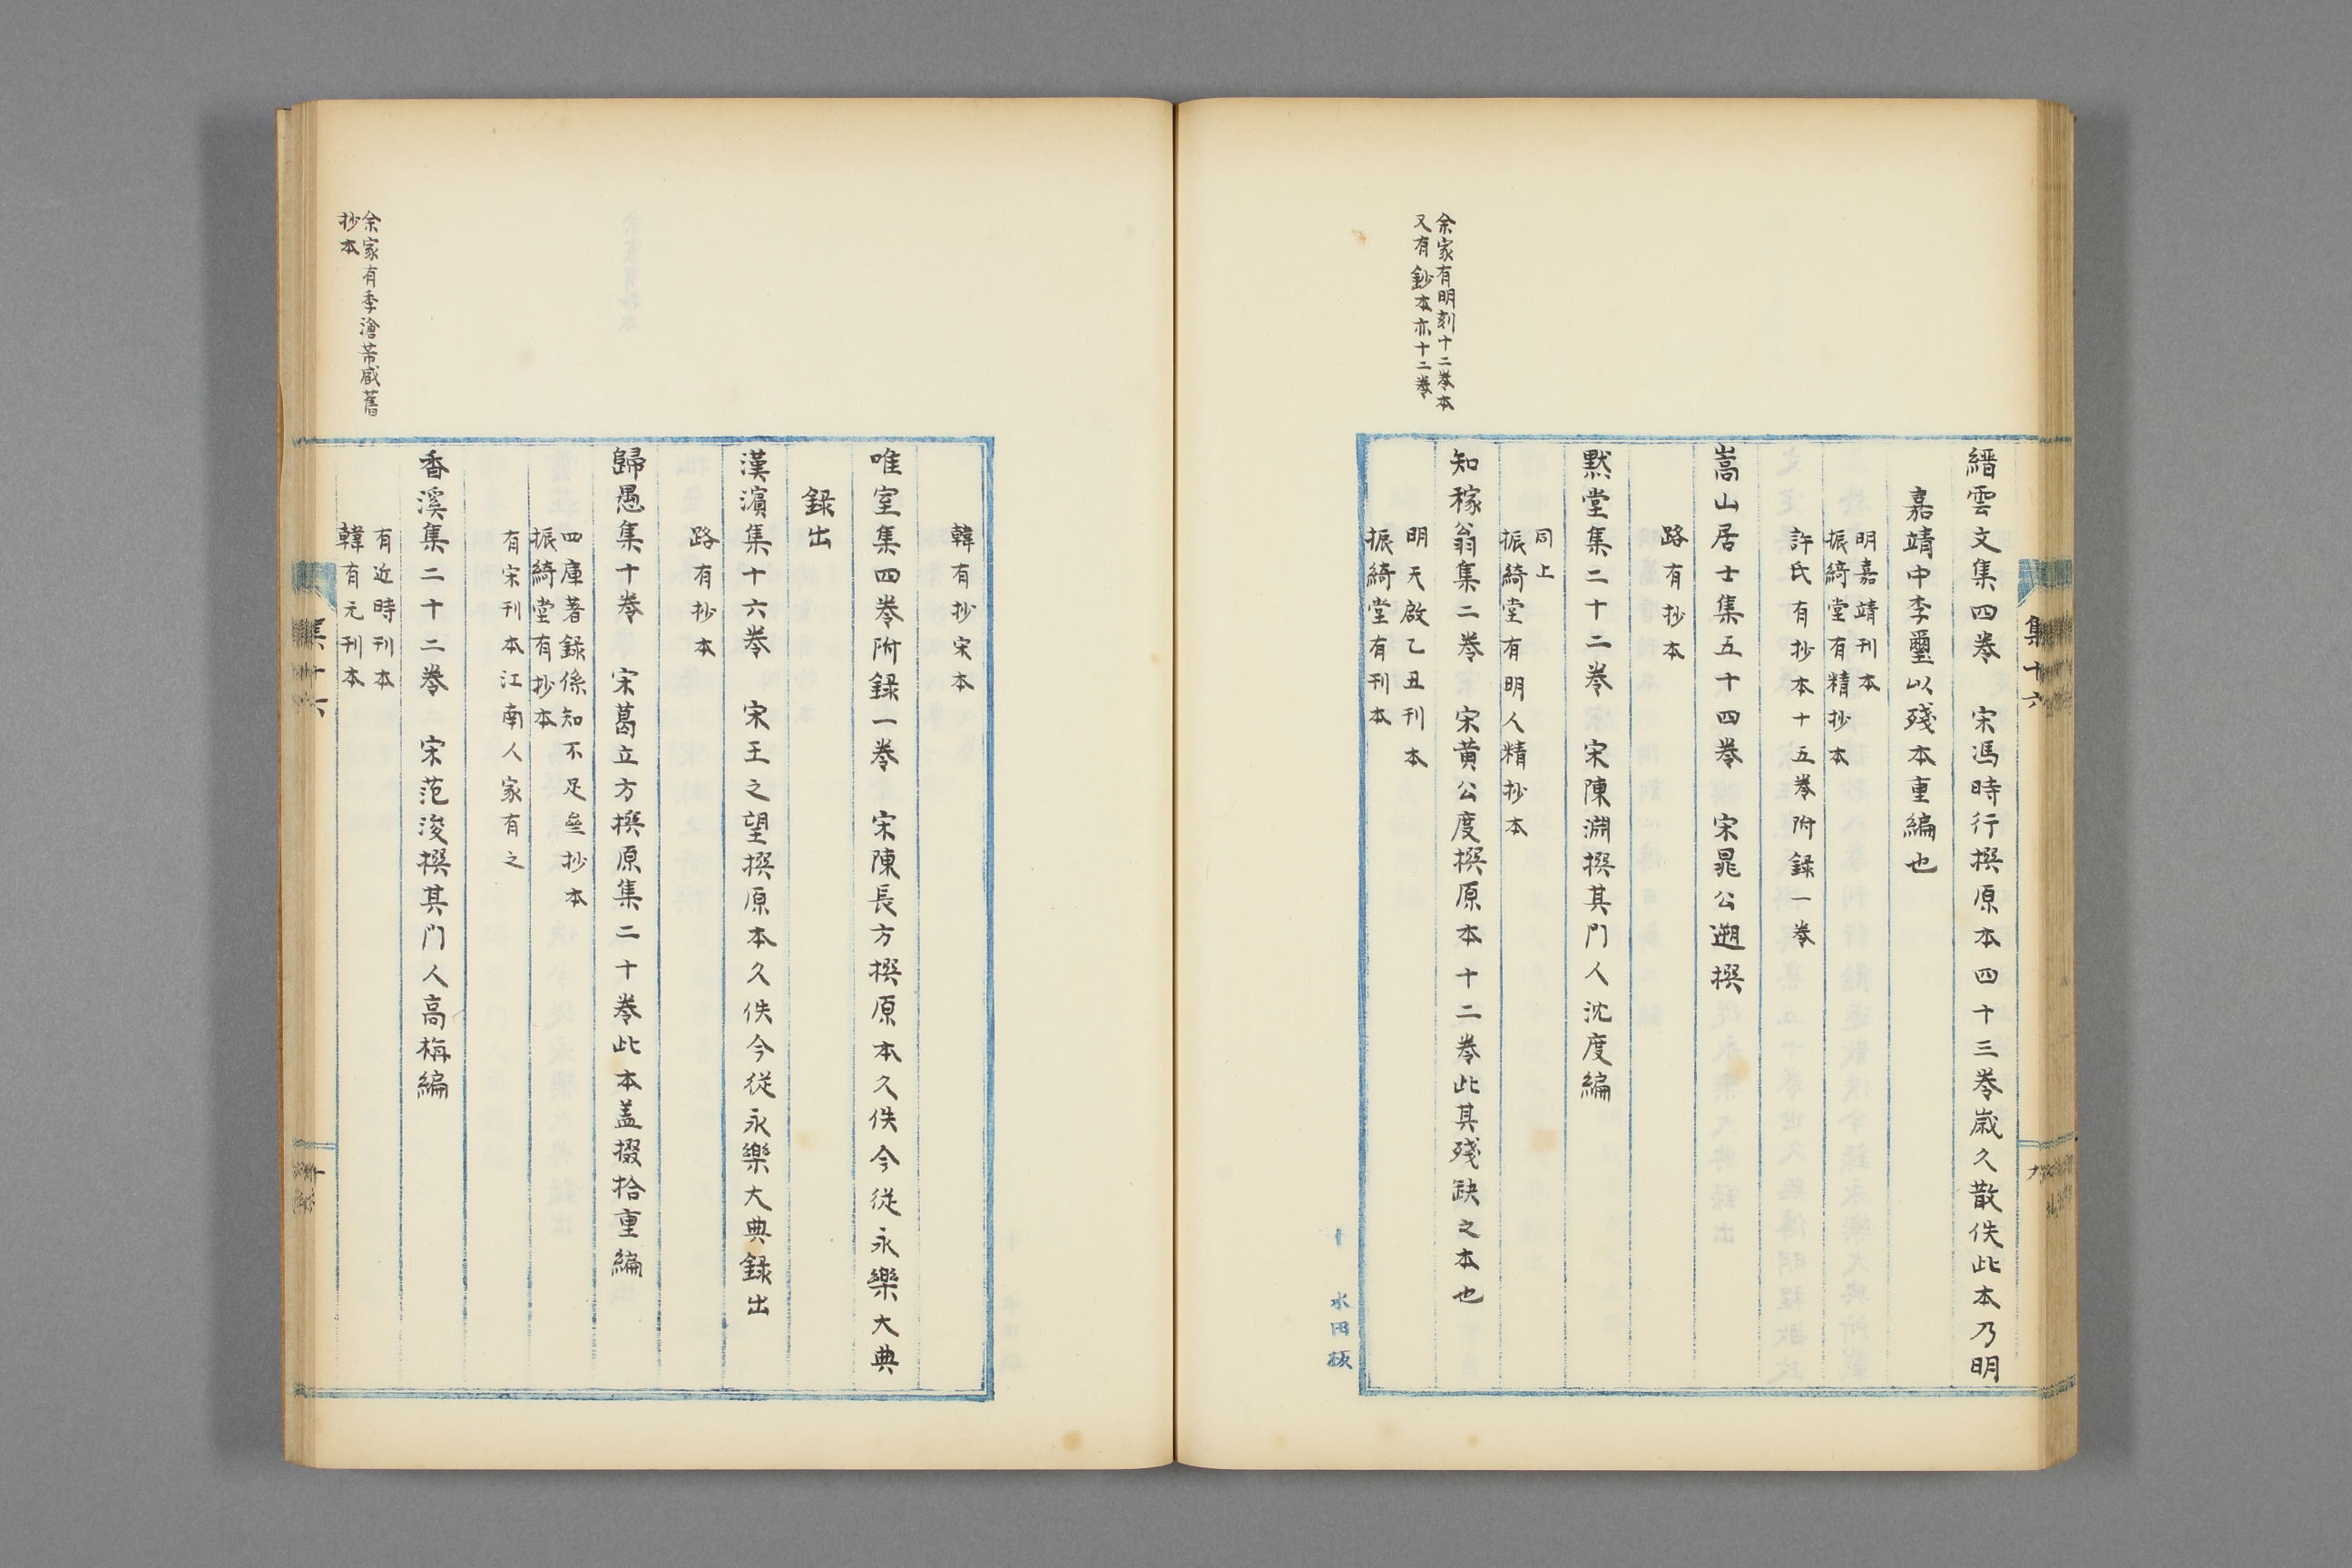 集十六
九
縉雲文集四卷　宋馮時行撰原本四十三卷歳久散佚此本乃明
嘉靖中李璽以殘本重編也
明嘉靖刊本
振綺堂有精抄本
許氏有抄本十五卷附録一卷
嵩山居士集五十四卷　宋晁公遡撰
路有抄本
黙堂集二十二卷　宋陳淵撰其門人沈度編
同上
振綺堂有明人精抄本
余家有明刻十二卷本
又有鈔本亦十二卷
知稼翁集二卷　宋黄公度撰原本十二卷此其殘缺之本也
明天啟乙丑刊本
振綺堂有刊本
十　水田板
韓有抄宋本
唯室集四卷附録一卷　宋陳長方撰原本久佚今從永樂大典
録出
漢濱集十六卷　宋王之望撰原本久佚今從永樂大典録出
路有抄本
歸愚集十卷　宋葛立方撰原集二十卷此本盖掇拾重編
四庫著録係知不足齋抄本
振綺堂有抄本
有宋刊本江南人家有之
香溪集二十二卷　宋范浚撰其門人高栴編
余家有季滄葦藏舊
抄本
有近時刊本
韓有元刊本
集十六
十